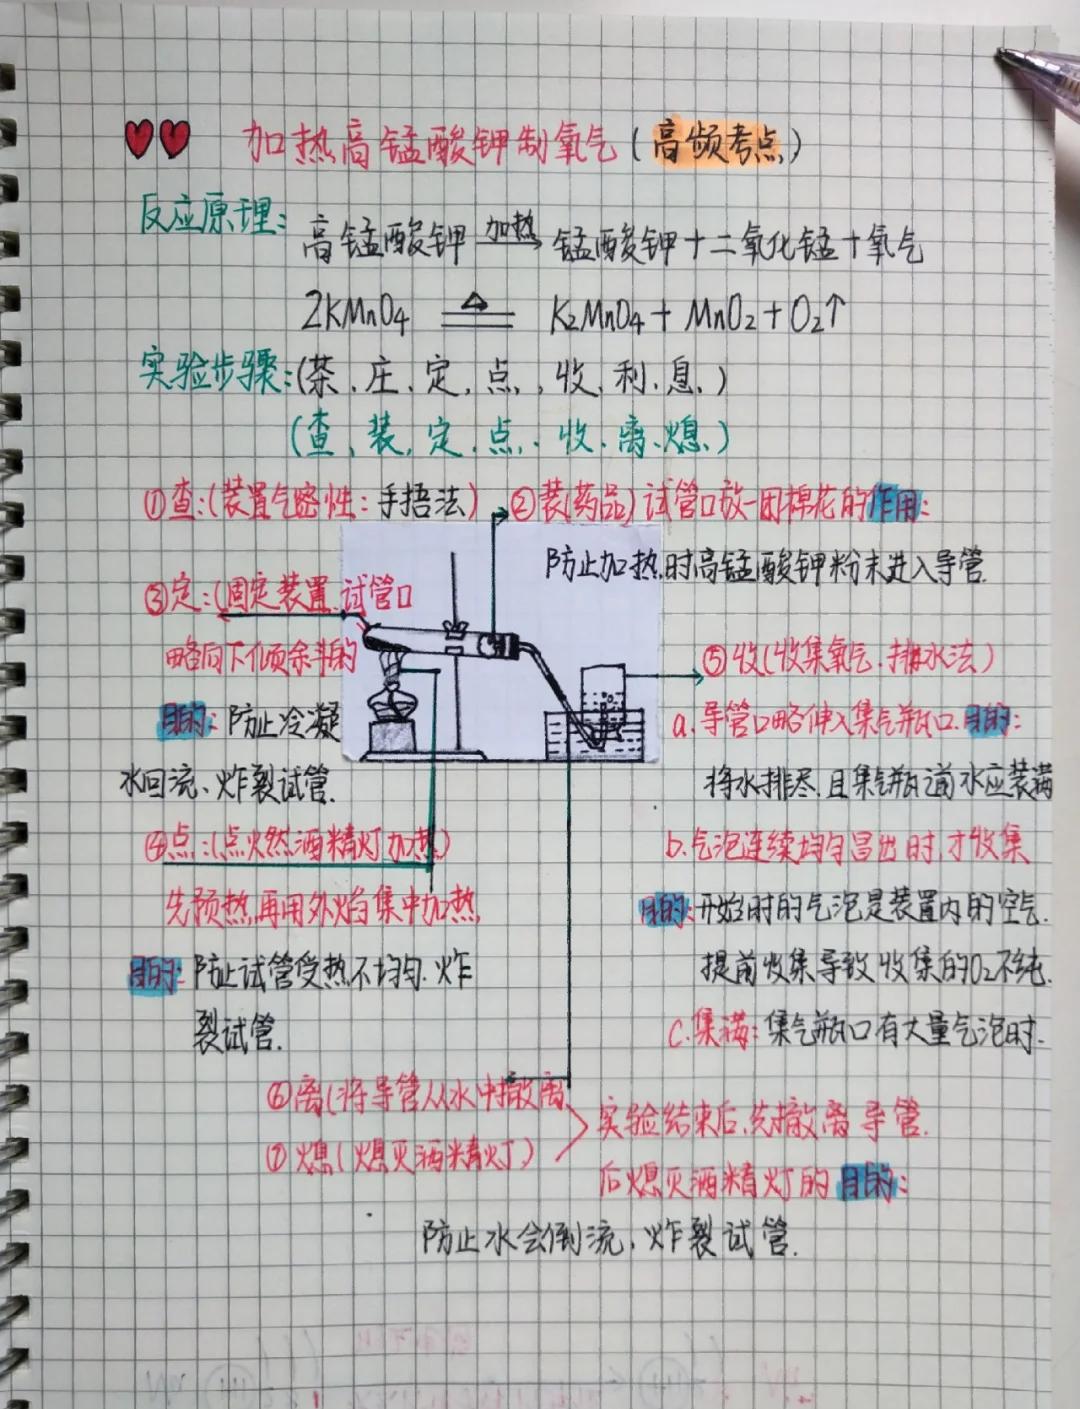 加热高锰酸钾制氧气(高频考点)
反应原理: 高锰酸钾 加热→ 锰酸钾+二氧化锰+氧气
2KMnO4 ≜ K2MnO4+MnO2+O2↑
实验步骤:(茶、庄、定、点、收、利、息、)
(查、装、定、点、收、离、熄、)
①查:(装置气密性:手捂法)
②装(药品)试管口放一团棉花的作用:
防止加热时高锰酸钾粉末进入导管.
③定:(固定装置.试管口
略向下倾斜的
目的:防止冷凝
水回流、炸裂试管.
④点:(点火然酒精灯加热)
先预热,再用外焰集中加热
目的:防止试管受热不均匀.炸
裂试管.
⑤收(收集氧气.排水法)
a.导管口略伸入集气瓶口.目的:
将水排尽.且集气瓶前水应装满
b.气泡连续均匀冒出时,才收集
目的:开始时的气泡是装置内的空气.
提前收集导致收集的O2不纯.
c.集满:集气瓶口有大量气泡时.
⑥离(将导管从水中撤离
⑦熄(熄灭酒精灯)
实验结束后,先撤离导管.
后熄灭酒精灯的目的:
防止水会倒流、炸裂试管.